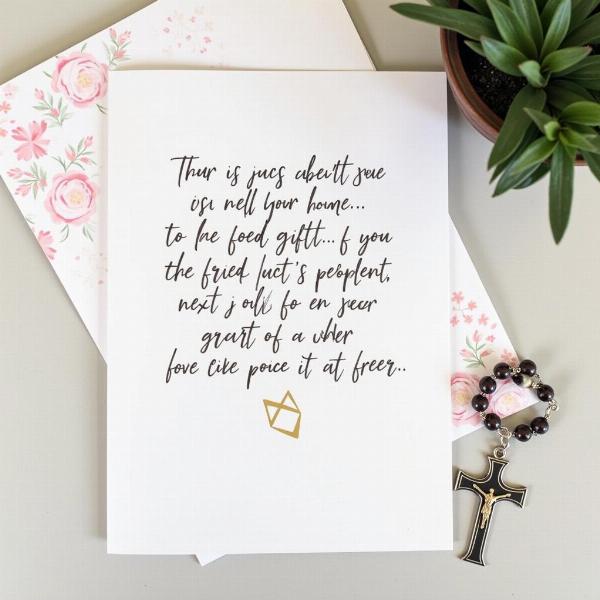 Thur is jucs abeitt sue
isi nell your home...
to he foed giftt... f you
the fried luct's pesplent,
next j oill fo en secr
grart of a uhler
fove like poice it at freer..